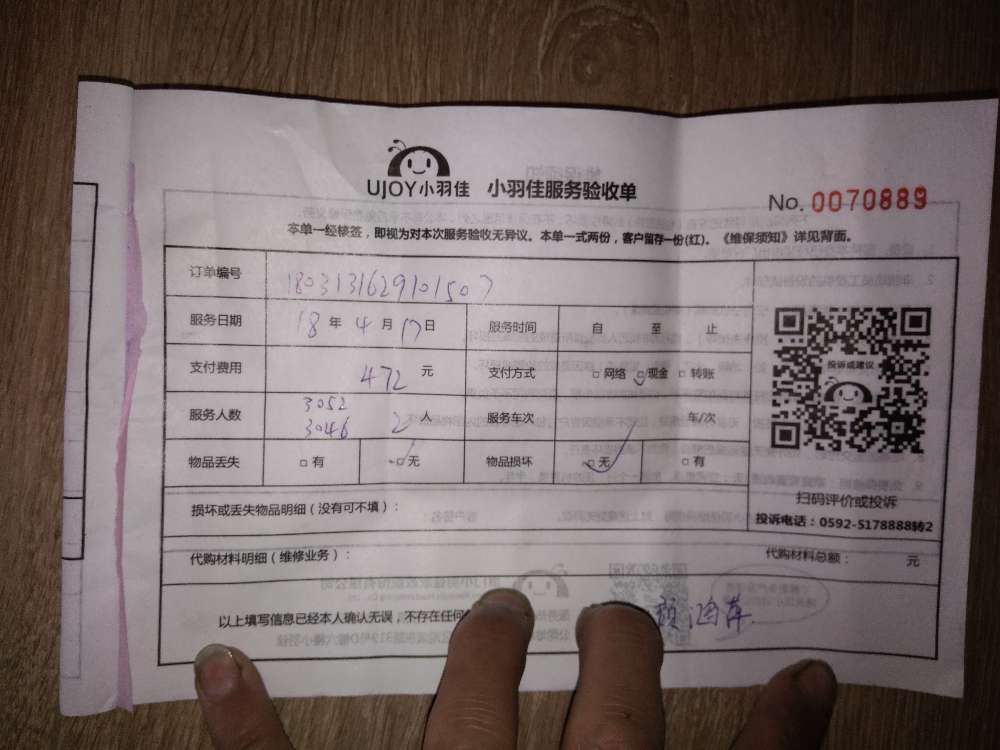 UJOY小羽佳 小羽佳服务验收单
No. 0070889
本单一经核签，即视为对本次服务验收无异议。本单一式两份，客户留存一份(红)。《维保须知》详见背面。
订单编号 1803131629101507
服务日期 18 年 4 月 17 日 服务时间 自 至 止
支付费用 472 元 支付方式 □ 网络 □ 现金 □ 转账
服务人数 3052 3046 2 人 服务车次 车/次
物品丢失 □ 有 □ 无 物品损坏 □ 无 □ 有
投诉或建议
扫码评价或投诉
投诉电话：0592-5178888转2
损坏或丢失物品明细（没有可不填）：
代购材料明细（维修业务）： 代购材料总额： 元
以上填写信息已经本人确认无误，不存在任何